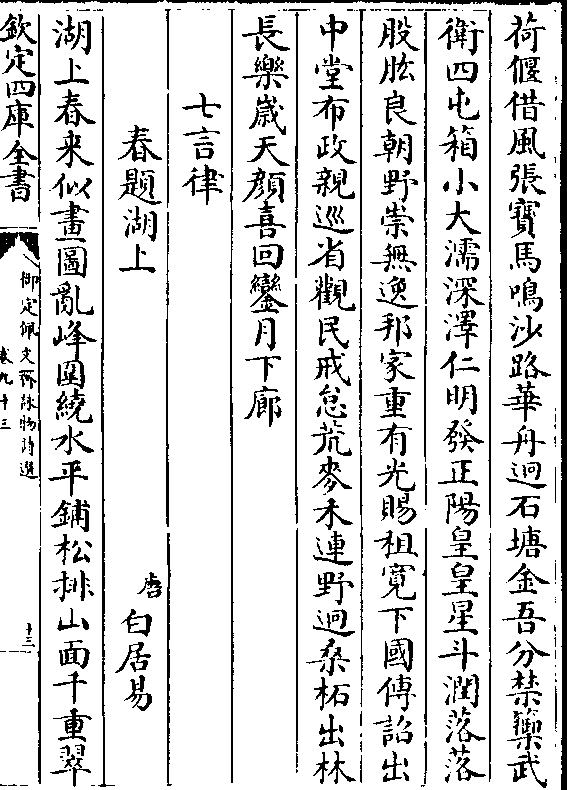 荷偃借風張寶馬鳴沙路華舟迥石塘金吾分禁籞武
衛四屯箱小大濡深澤仁明發正陽皇皇星斗潤落落
股肱良朝野崇無逸邦家重有光賜租寛下國傳詔出
中堂布政親巡省觀民戒怠荒麥禾連野迥桑柘出林
長樂歲天顔喜回鑾月下廊
七言律
春題湖上
唐 白居易
湖上春来似畫圖亂峰圍繞水平鋪松排山面千重翠
欽定四庫全書
御定佩文齋詠物詩選
卷九十三
十三